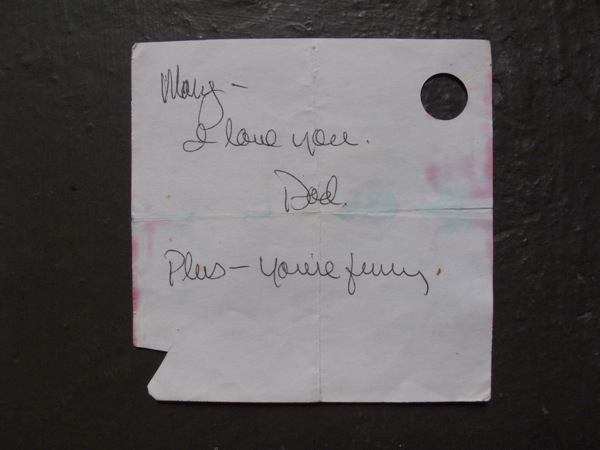 Mary -
I love you.
Dad.
Plus - you're funny.